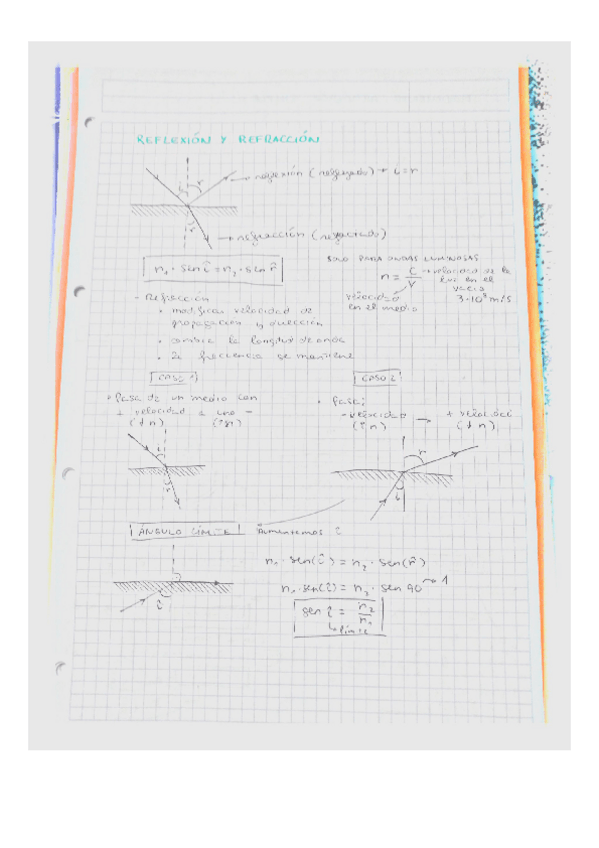 REFLEXIÓN Y REFRACCIÓN
i r → reflexión (reflejado) * i=r
r → refracción (refractado)
n₁ · sen î = n₂ · sen r̂
SOLO PARA ONDAS LUMINOSAS
n = c/v → velocidad de la luz en el vacío 3·10⁸ m/s
velocidad en el medio
- Refracción
• modifica velocidad de
propagación y dirección
• cambia la longitud de onda
• la frecuencia se mantiene
CASO 1
• Pasa de un medio con
+ velocidad a uno -
(↓n) (↑n)
i
r
CASO 2
• Pasa:
- velocidad → + velocidad
(↑n) (↓n)
r
i
ÁNGULO LÍMITE Aumentemos î
î
n₁ · sen(î) = n₂ · sen(r̂)
n₁ · sen(î) = n₂ · sen 90 → 1
sen î = n₂/n₁
↳ límite